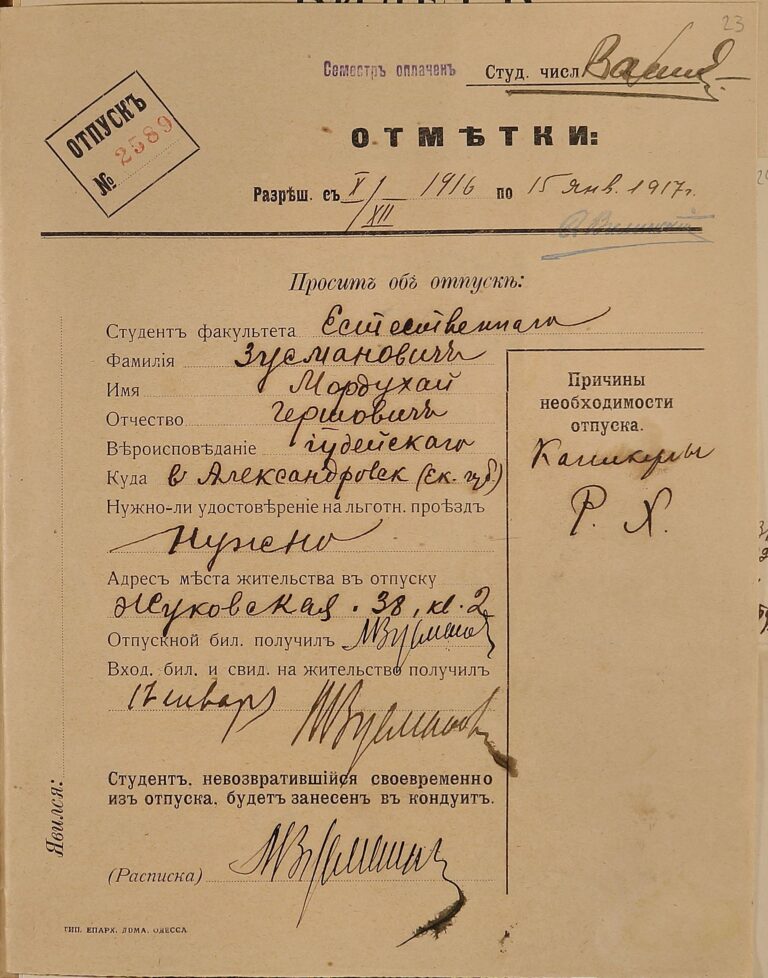 23
Семестръ оплаченъ
Студ. числ.
ОТПУСКЪ
№ 2589
ОТМѢТКИ:
Разрѣш. съ X/XII 1916 по 15 янв. 1917 г.
Проситъ объ отпускѣ:
Студентъ факультета Естественнаго
Фамилія Зусмановичъ
Имя Мордухай
Отчество Гершовичъ
Вѣроисповѣданіе іудейскаго
Куда в Александровск (Ек. губ.)
Нужно-ли удостовѣреніе на льготн. проѣздъ
Нужно
Адресъ мѣста жительства въ отпуску
Жуковская 38, кв. 2
Отпускной бил. получилъ МЗусманов
Вход. бил. и свид. на жительство получилъ
17 январ МЗусманов
Студентъ, невозвратившійся своевременно
изъ отпуска, будетъ занесенъ въ кондуитъ.
(Расписка) МЗусманов
Причины
необходимости
отпуска.
Каникулы
Р. Х.
Явился:
ТИП. ЕПАРХ. ДОМА. ОДЕССА.